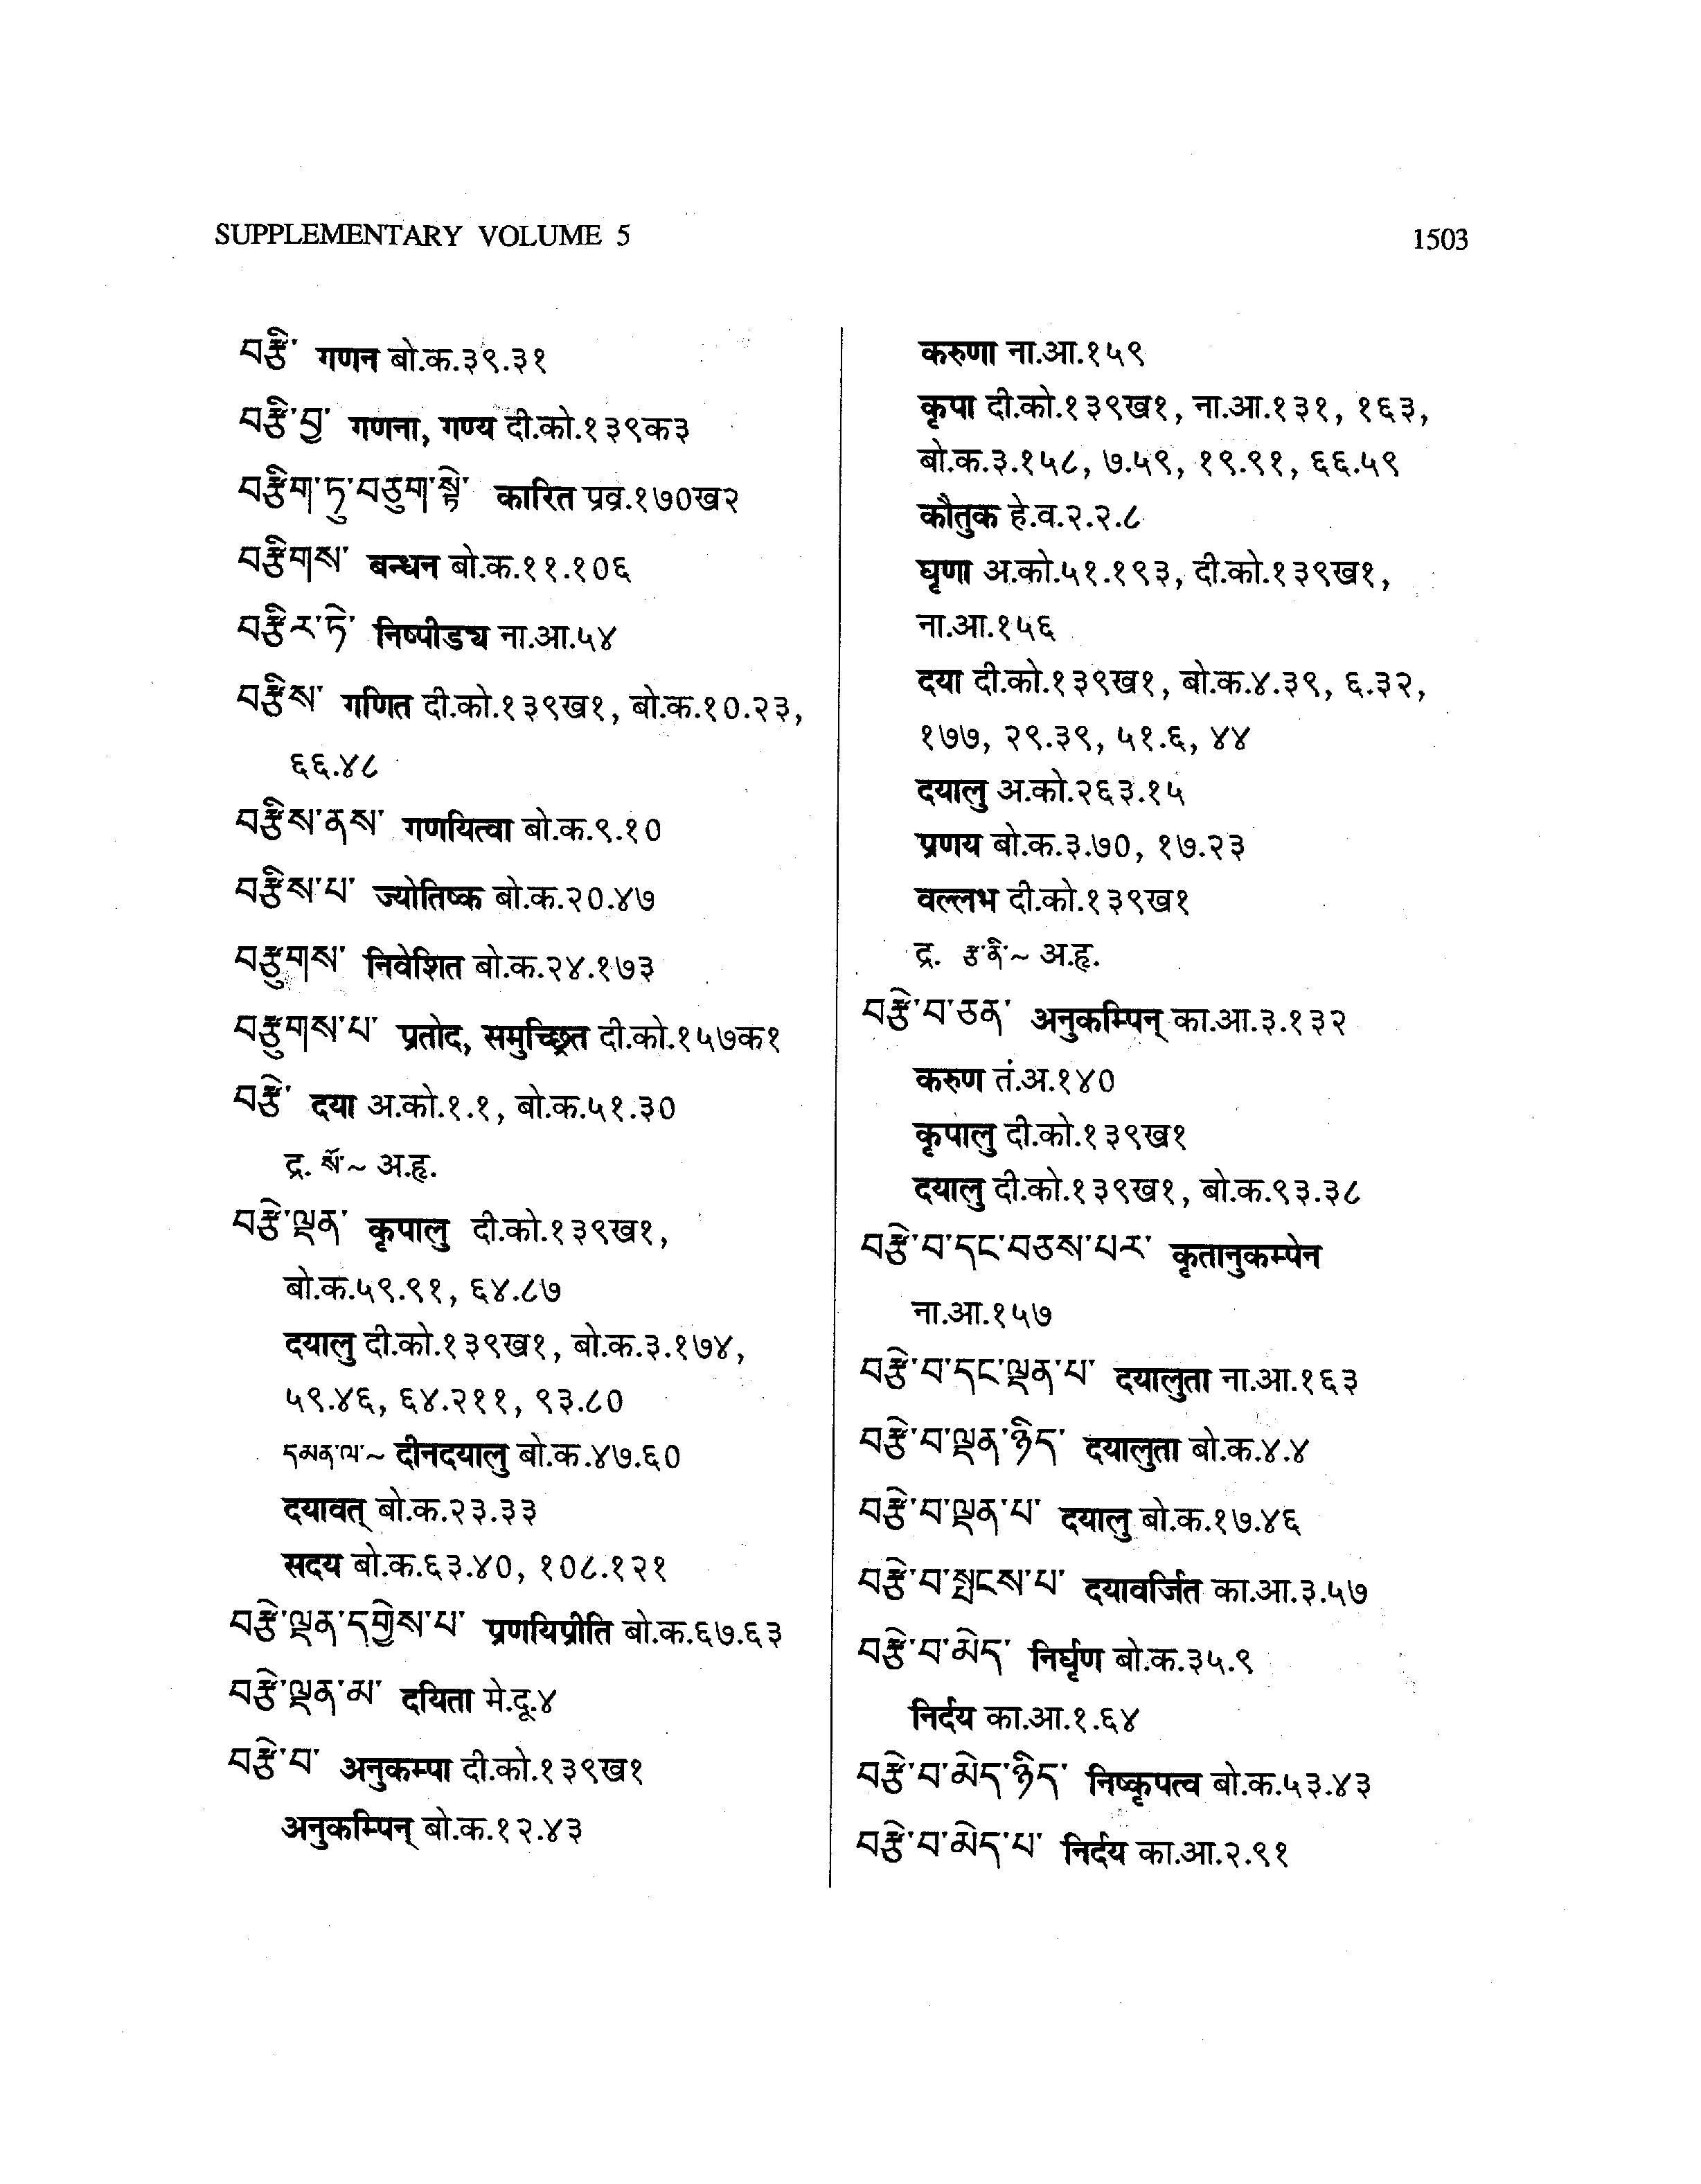 SUPPLEMENTARY VOLUME 5
1503
བརྩི་ गणन बो.क.३९.३१
བརྩི་བྱ་ गणना, गण्य दी.को.१३९क३
བརྩིག་ཏུ་བཅུག་སྟེ་ कारित प्रव्र.१७०ख२
བརྩིགས་ बन्धन बो.क.११.१०६
བརྩིར་ཏེ་ निष्पीड्य ना.आ.५४
བརྩིས་ गणित दी.को.१३९ख१, बो.क.१०.२३,
६६.४८
བརྩིས་ནས་ गणयित्वा बो.क.९.१०
བརྩིས་པ་ ज्योतिष्क बो.क.२०.४७
བརྩུགས་ निवेशित बो.क.२४.१७३
བརྩུགས་པ་ प्रतोद, समुच्छ्रित दी.को.१५७क१
བརྩེ་ दया अ.को.१.१, बो.क.५१.३०
द्र. སོ་~ अ.हृ.
བརྩེ་ལྡན་ कृपालु दी.को.१३९ख१,
बो.क.५९.९१, ६४.८७
दयालु दी.को.१३९ख१, बो.क.३.१७४,
५९.४६, ६४.२११, ९३.८०
དམན་ལ་~ दीनदयालु बो.क.४७.६०
दयावत् बो.क.२३.३३
सदय बो.क.६३.४०, १०८.१२१
བརྩེ་ལྡན་དགྱེས་པ་ प्रणयिप्रीति बो.क.६७.६३
བརྩེ་ལྡན་མ་ दयिता मे.दू.४
བརྩེ་བ་ अनुकम्पा दी.को.१३९ख१
अनुकम्पिन् बो.क.१२.४३
करुणा ना.आ.१५९
कृपा दी.को.१३९ख१, ना.आ.१३१, १६३,
बो.क.३.१५८, ७.५९, १९.९१, ६६.५९
कौतुक हे.व.२.२.८
घृणा अ.को.५१.१९३, दी.को.१३९ख१,
ना.आ.१५६
दया दी.को.१३९ख१, बो.क.४.३९, ६.३२,
१७७, २९.३९, ५१.६, ४४
दयालु अ.को.२६३.१५
प्रणय बो.क.३.७०, १७.२३
वल्लभ दी.को.१३९ख१
द्र. རྩ་ནི་~ अ.हृ.
བརྩེ་བ་ཅན་ अनुकम्पिन् का.आ.३.१३२
करुण तं.अ.१४०
कृपालु दी.को.१३९ख१
दयालु दी.को.१३९ख१, बो.क.९३.३८
བརྩེ་བ་དང་བཅས་པར་ कृतानुकम्पेन
ना.आ.१५७
བརྩེ་བ་དང་ལྡན་པ་ दयालुता ना.आ.१६३
བརྩེ་བ་ལྡན་ཉིད་ दयालुता बो.क.४.४
བརྩེ་བ་ལྡན་པ་ दयालु बो.क.१७.४६
བརྩེ་བ་སྤངས་པ་ दयावर्जित का.आ.३.५७
བརྩེ་བ་མེད་ निर्घृण बो.क.३५.९
निर्दय का.आ.१.६४
བརྩེ་བ་མེད་ཉིད་ निष्कृपत्व बो.क.५३.४३
བརྩེ་བ་མེད་པ་ निर्दय का.आ.२.९१